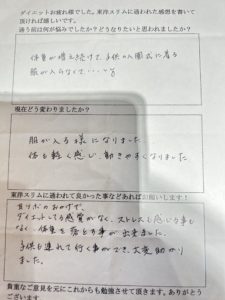 ダイエットお疲れ様でした。東洋スリムに通われた感想を書いて
頂ければ嬉しいです。
通う前は何が悩みでしたか？どうなりたいと思われましたか？
体重が増え続けて、子供の入園式に着る
服が入らなくて・・・・
現在どう変わりましたか？
服が入る様になりました。
体も軽く感じ、動きやすくなりました。
東洋スリムに通われて良かった事などあればお願いします！
耳ツボのおかげで、
ダイエットしてる感覚がなく、ストレスも感じる事も
なく、体重を落とす事が出来ました。
子供も連れて行く事ができ、大変助かり
ました。
貴重なご意見を元にこれからも勉強させて頂きます。ありがとう
ございます